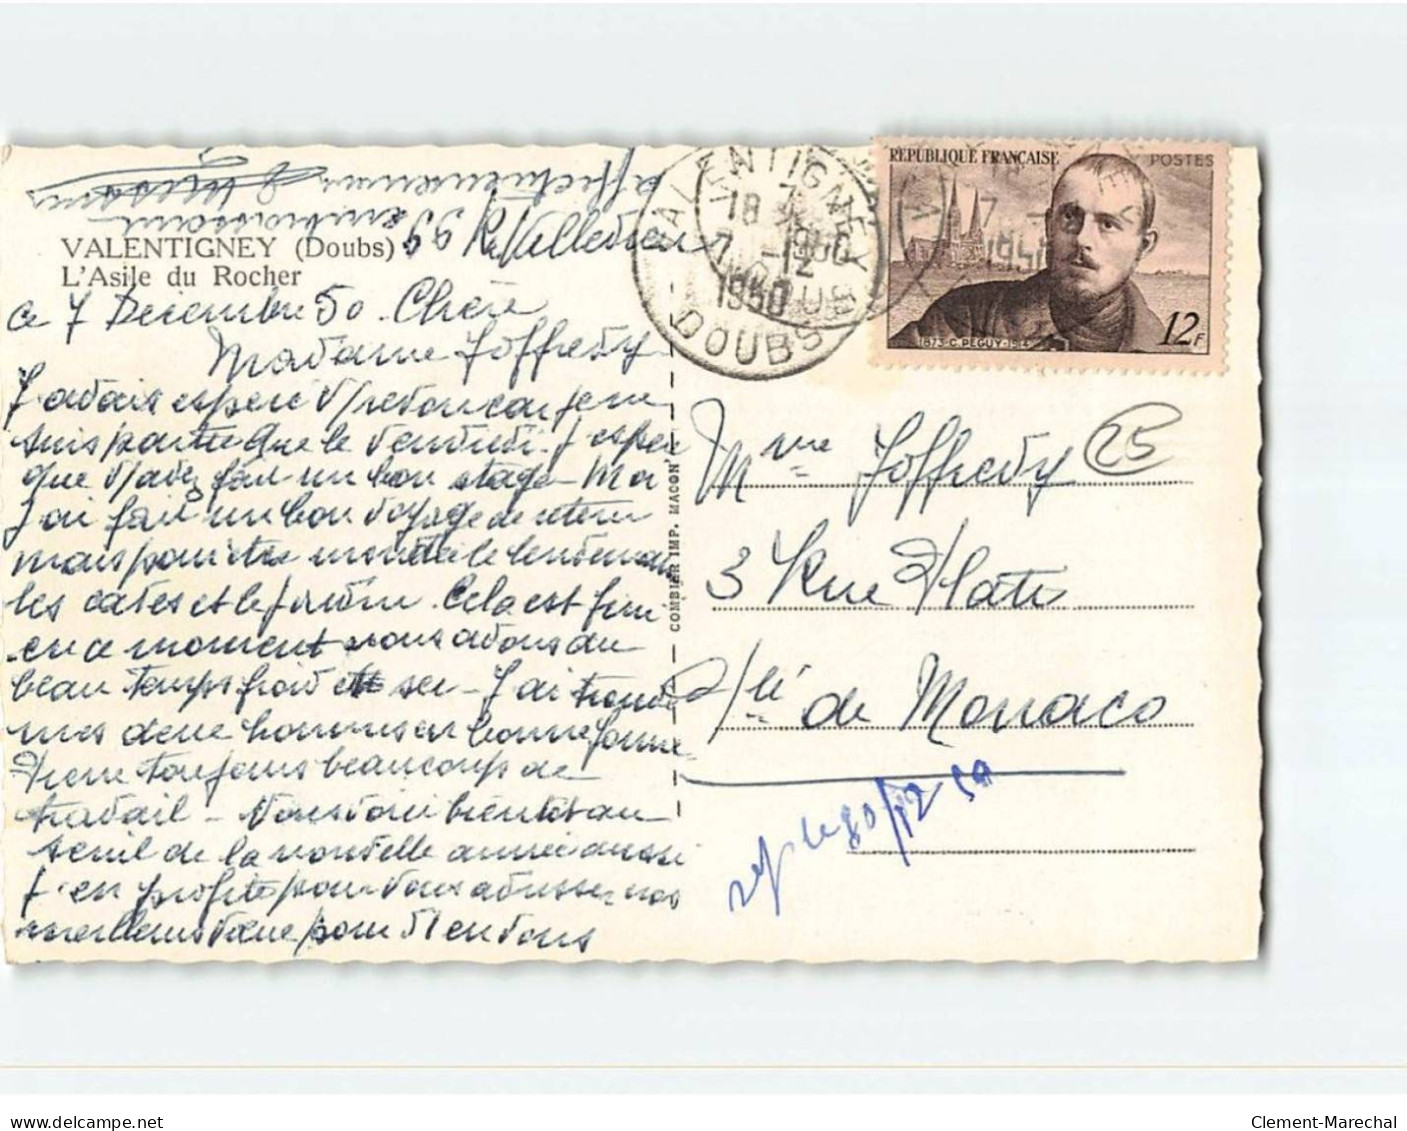 VALENTIGNEY (Doubs)
L'Asile du Rocher
affectueusement
99 R. Villedieu
ce 7 Decembre 50. Chère
Madame Joffredy
J'avais espéré v/ retour car je ne
suis partie que le Vendredi. J'espère
que v/ avez fait un bon stage
J'ai fait un bon voyage de retour
mais pour être le lendemain
les et le . Cela est fini
en ce moment nous avons du
beau temps froid et sec - J'ai trouvé
mes deux hommes en bonne forme
Pierre toujours beaucoup de
travail - Nous voici bientôt au
seuil de la nouvelle année aussi
j'en profite pour vous adresser nos
meilleurs vœux pour v/ en vous
embrassant
COMBIER IMP. MACON
VALENTIGNEY
18
7 -12
1950
DOUBS
REPUBLIQUE FRANÇAISE
POSTES
1873-C. PEGUY-1914
12F
25
Mme Joffredy
3 Rue Plati
Pté de Monaco
rep le 30/12 50
Clement-Marechal